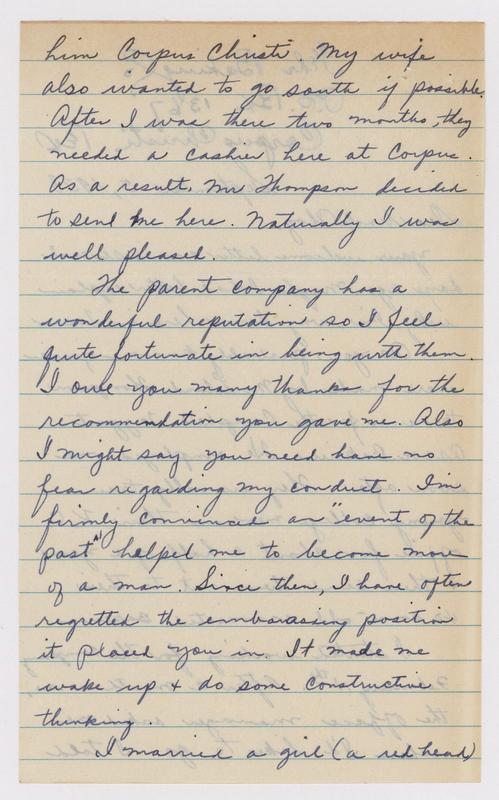 him Corpus Christi. My wife
also wanted to go south if possible.
After I was there two months, they
needed a cashier here at Corpus.
As a result, Mr Thompson decided
to send me here. Naturally I was
well pleased.
The parent company has a
wonderful reputation so I feel
quite fortunate in being with them.
I owe you many thanks for the
recommendation you gave me. Also
I might say you need have no
fear regarding my conduct. I'm
firmly convinced an "event of the
past" helped me to become more
of a man. Since then, I have often
regretted the embarassing position
it placed you in. It made me
wake up + do some constructive
thinking.
I married a girl (a red head)